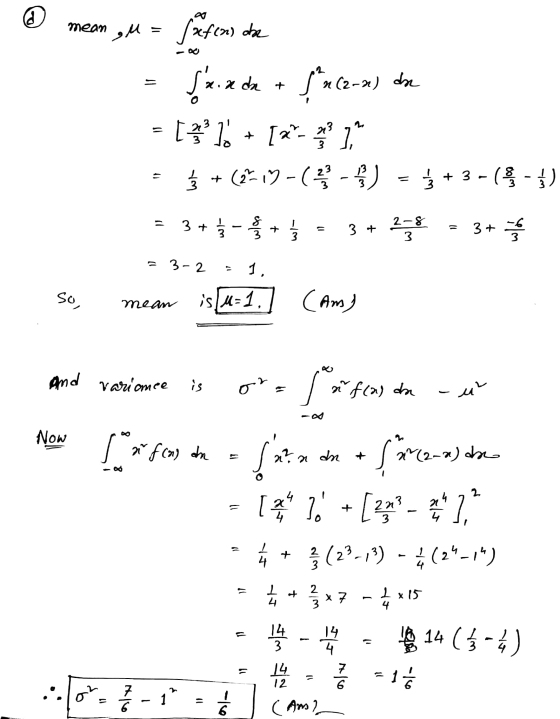 (d) mean, μ = ∫_{-∞}^{∞} x f(x) dx
= ∫_0^1 x.x dx + ∫_1^2 x(2-x) dx
= [x³/3]_0^1 + [x² - x³/3]_1^2
= 1/3 + (2²-1²) - (2³/3 - 1³/3) = 1/3 + 3 - (8/3 - 1/3)
= 3 + 1/3 - 8/3 + 1/3 = 3 + (2-8)/3 = 3 + -6/3
= 3-2 = 1.
So, mean is μ=1. (Ans)
And variance is σ² = ∫_{-∞}^{∞} x² f(x) dx - μ²
Now ∫_{-∞}^{∞} x² f(x) dx = ∫_0^1 x².x dx + ∫_1^2 x²(2-x) dx
= [x⁴/4]_0^1 + [2x³/3 - x⁴/4]_1^2
= 1/4 + 2/3 (2³-1³) - 1/4 (2⁴-1⁴)
= 1/4 + 2/3 × 7 - 1/4 × 15
= 14/3 - 14/4 = 14 (1/3 - 1/4)
= 14/12 = 7/6 = 1 1/6
∴ σ² = 7/6 - 1² = 1/6 (Ans)